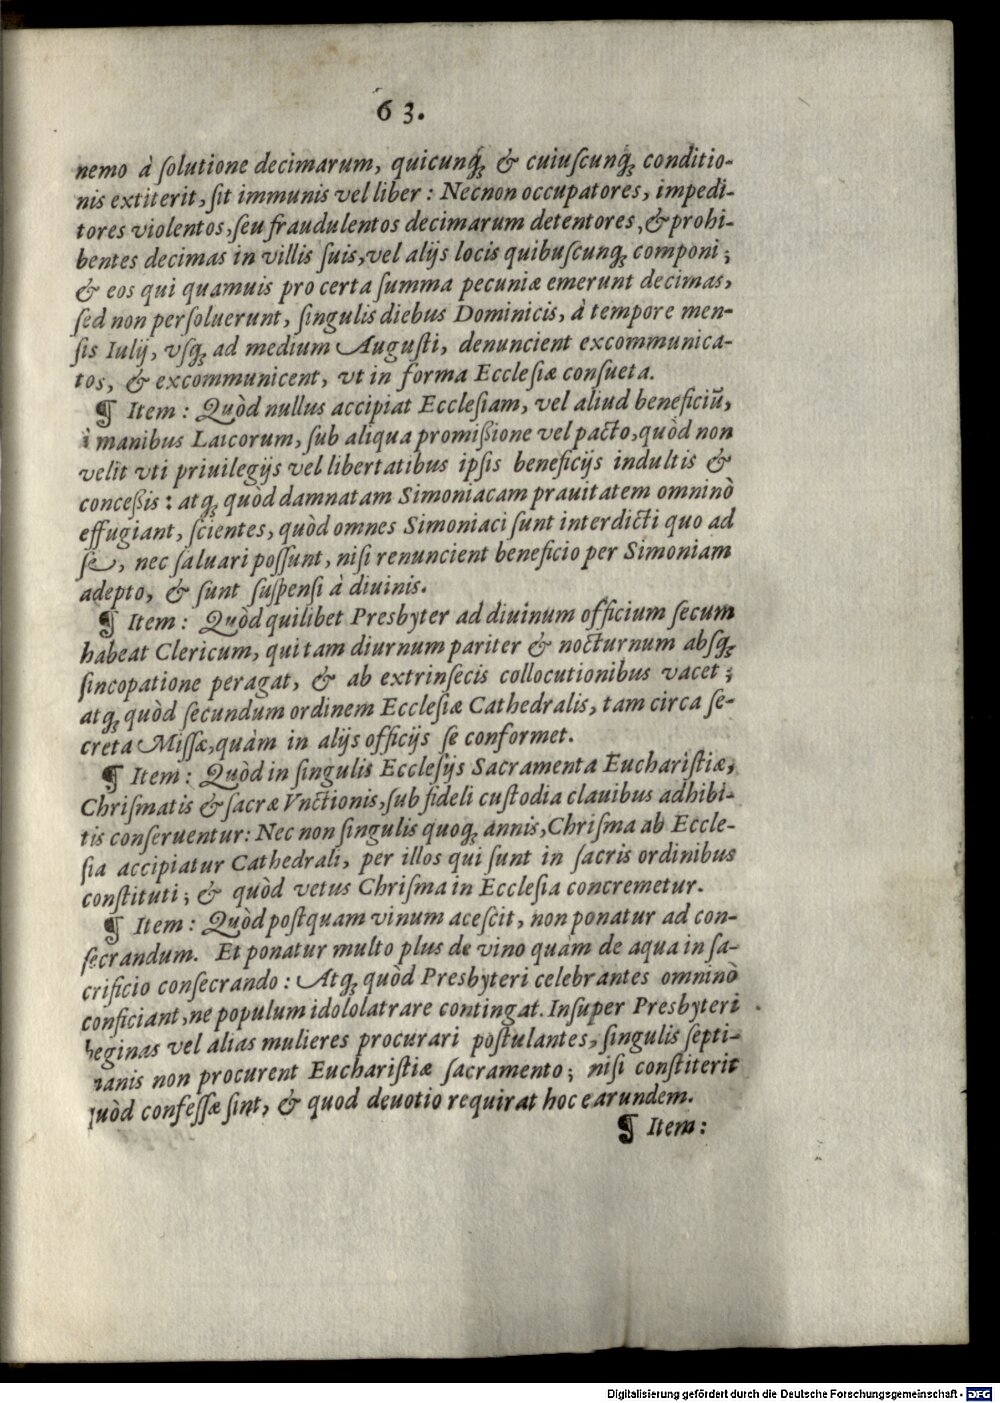 63.
nemo à ſolutione decimarum, quicunq́; & cuiuſcunq́; conditio-
nis extiterit, ſit immunis vel liber : Necnon occupatores, impedi-
tores violentos, ſeu fraudulentos decimarum detentores, & prohi-
bentes decimas in villis ſuis, vel alijs locis quibuſcunq; componi ;
& eos qui quamuis pro certa ſumma pecuniæ emerunt decimas,
ſed non perſoluerunt, ſingulis diebus Dominicis, à tempore men-
ſis Iulij, vſq; ad medium Auguſti, denuncient excommunica-
tos, & excommunicent, vt in forma Eccleſiæ conſueta.
¶ Item : Quòd nullus accipiat Eccleſiam, vel aliud beneficiũ,
à manibus Laicorum, ſub aliqua promißione vel pacto, quòd non
velit vti priuilegijs vel libertatibus ipſis beneficijs indultis &
conceßis : atq; quòd damnatam Simoniacam prauitatem omninò
effugiant, ſcientes, quòd omnes Simoniaci ſunt interdicti quo ad
ſe, nec ſaluari poſſunt, niſi renuncient beneficio per Simoniam
adepto, & ſunt ſuſpenſi à diuinis.
¶ Item : Quòd quilibet Presbyter ad diuinum officium ſecum
habeat Clericum, qui tam diurnum pariter & nocturnum abſq;
ſincopatione peragat, & ab extrinſecis collocutionibus vacet ;
atq; quòd ſecundum ordinem Eccleſiæ Cathedralis, tam circa ſe-
creta Miſſæ, quàm in alijs officijs ſe conformet.
¶ Item : Quòd in ſingulis Eccleſijs Sacramenta Euchariſtiæ,
Chriſmatis & ſacræ Vnctionis, ſub fideli cuſtodia clauibus adhibi-
tis conſeruentur : Nec non ſingulis quoq; annis, Chriſma ab Eccle-
ſia accipiatur Cathedrali, per illos qui ſunt in ſacris ordinibus
conſtituti ; & quòd vetus Chriſma in Eccleſia concremetur.
¶ Item : Quòd poſtquam vinum aceſcit, non ponatur ad con-
ſecrandum. Et ponatur multo plus de vino quàm de aqua in ſa-
crificio conſecrando : Atq; quòd Presbyteri celebrantes omninò
conficiant, ne populum idololatrare contingat. Inſuper Presbyteri
beginas vel alias mulieres procurari poſtulantes, ſingulis ſepti-
manis non procurent Euchariſtiæ ſacramento ; niſi conſtiterit
quòd confeſſæ ſint, & quod deuotio requirat hoc earundem.
¶ Item :
Digitalisierung gefördert durch die Deutsche Forschungsgemeinschaft - DFG